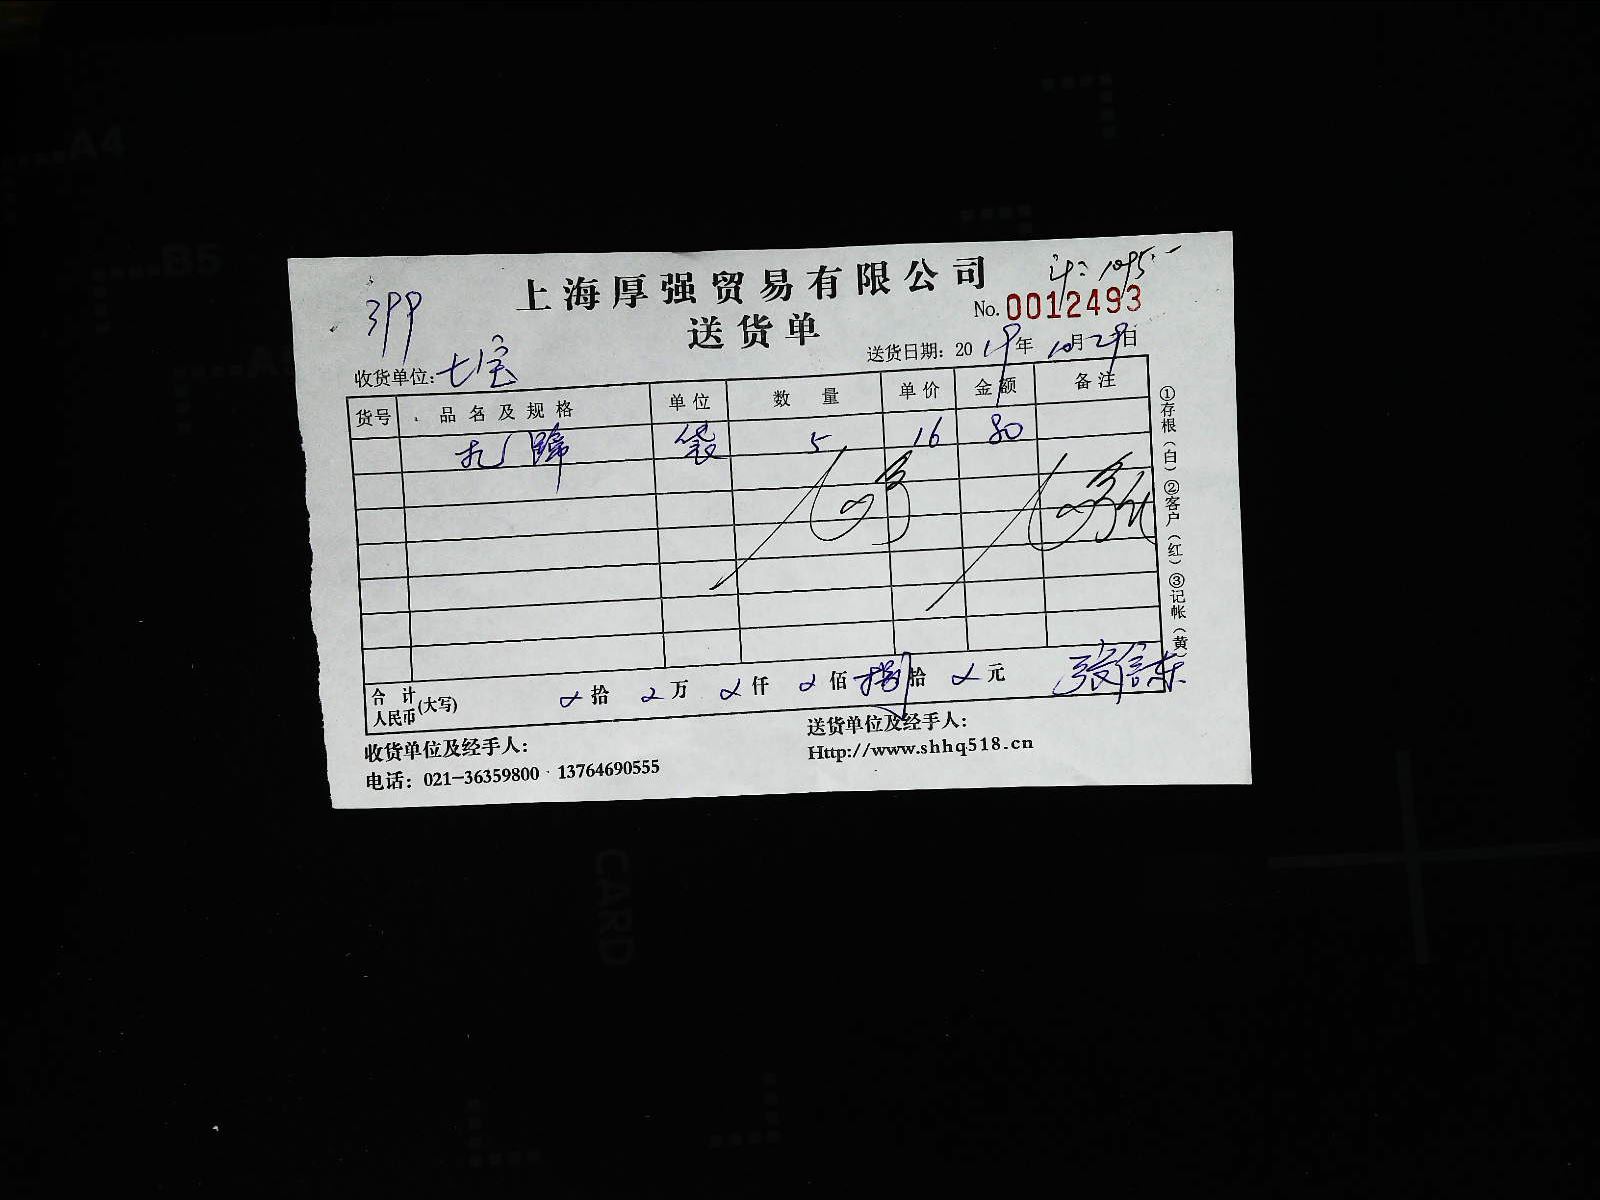 399
上海厚强贸易有限公司
计：1095.-
No. 0012493
送货单
送货日期：2019年10月29日
收货单位：七宝
货号 品名及规格 单位 数量 单价 金额 备注
扎蹄 袋 5 16 80
①存根（白）②客户（红）③记帐（黄）
合计人民币(大写) 拾 万 仟 佰 捌拾 元
张信东
收货单位及经手人：
送货单位及经手人：
电话：021-36359800 13764690555
Http://www.shhq518.cn
A4
B5
CARD